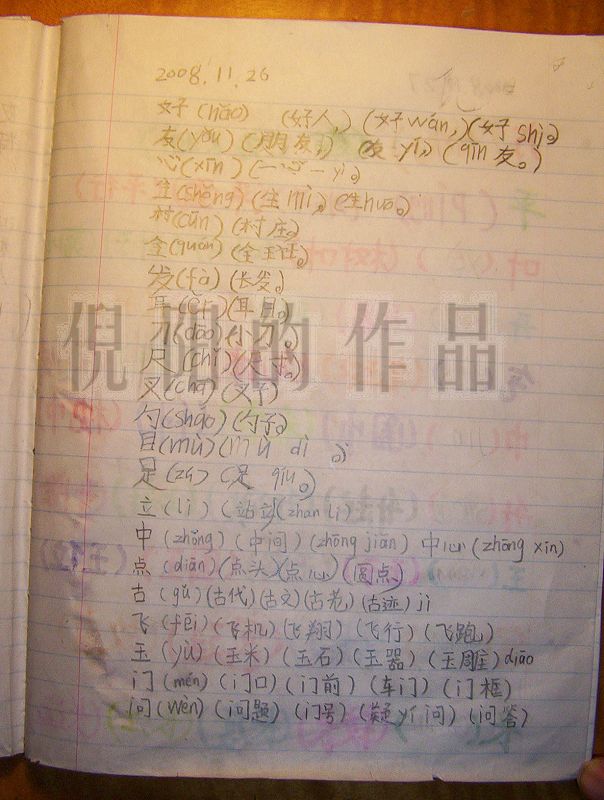 2008.11.26
好(hǎo) (好人,) (好wán,)(好shì。
友(yǒu) (朋友,) 友yì) (qīn友。)
心(xīn) (一心一yì。
生(shēng) (生mì。 (生huo。)
村(cūn) (村庄。
全(quán) (全
发(fà) (长发。
耳(ěr) (耳目。
刀(dāo) (小刀。
尺(chǐ) (尺寸。
叉(chā) (叉子
勺(sháo) (勺子。
目(mù) (mù dì 。
足(zú) (足 qiú。)
立(lì) (站立)(zhan li)
中(zhōng) (中间) (zhōng jiān) 中心(zhōng xīn)
点(diǎn) (点头)(点心)(圆点)
古(gǔ) (古代)(古文)(古老)(古迹)jì
飞(fēi) (飞机)(飞翔)(飞行)(飞跑)
玉(yù) (玉米)(玉石)(玉器)(玉雕)diāo
门(mén) (门口)(门前)(车门)(门框)
问(wèn) (问题)(问号)(疑yí问)(问答)
倪 的作品